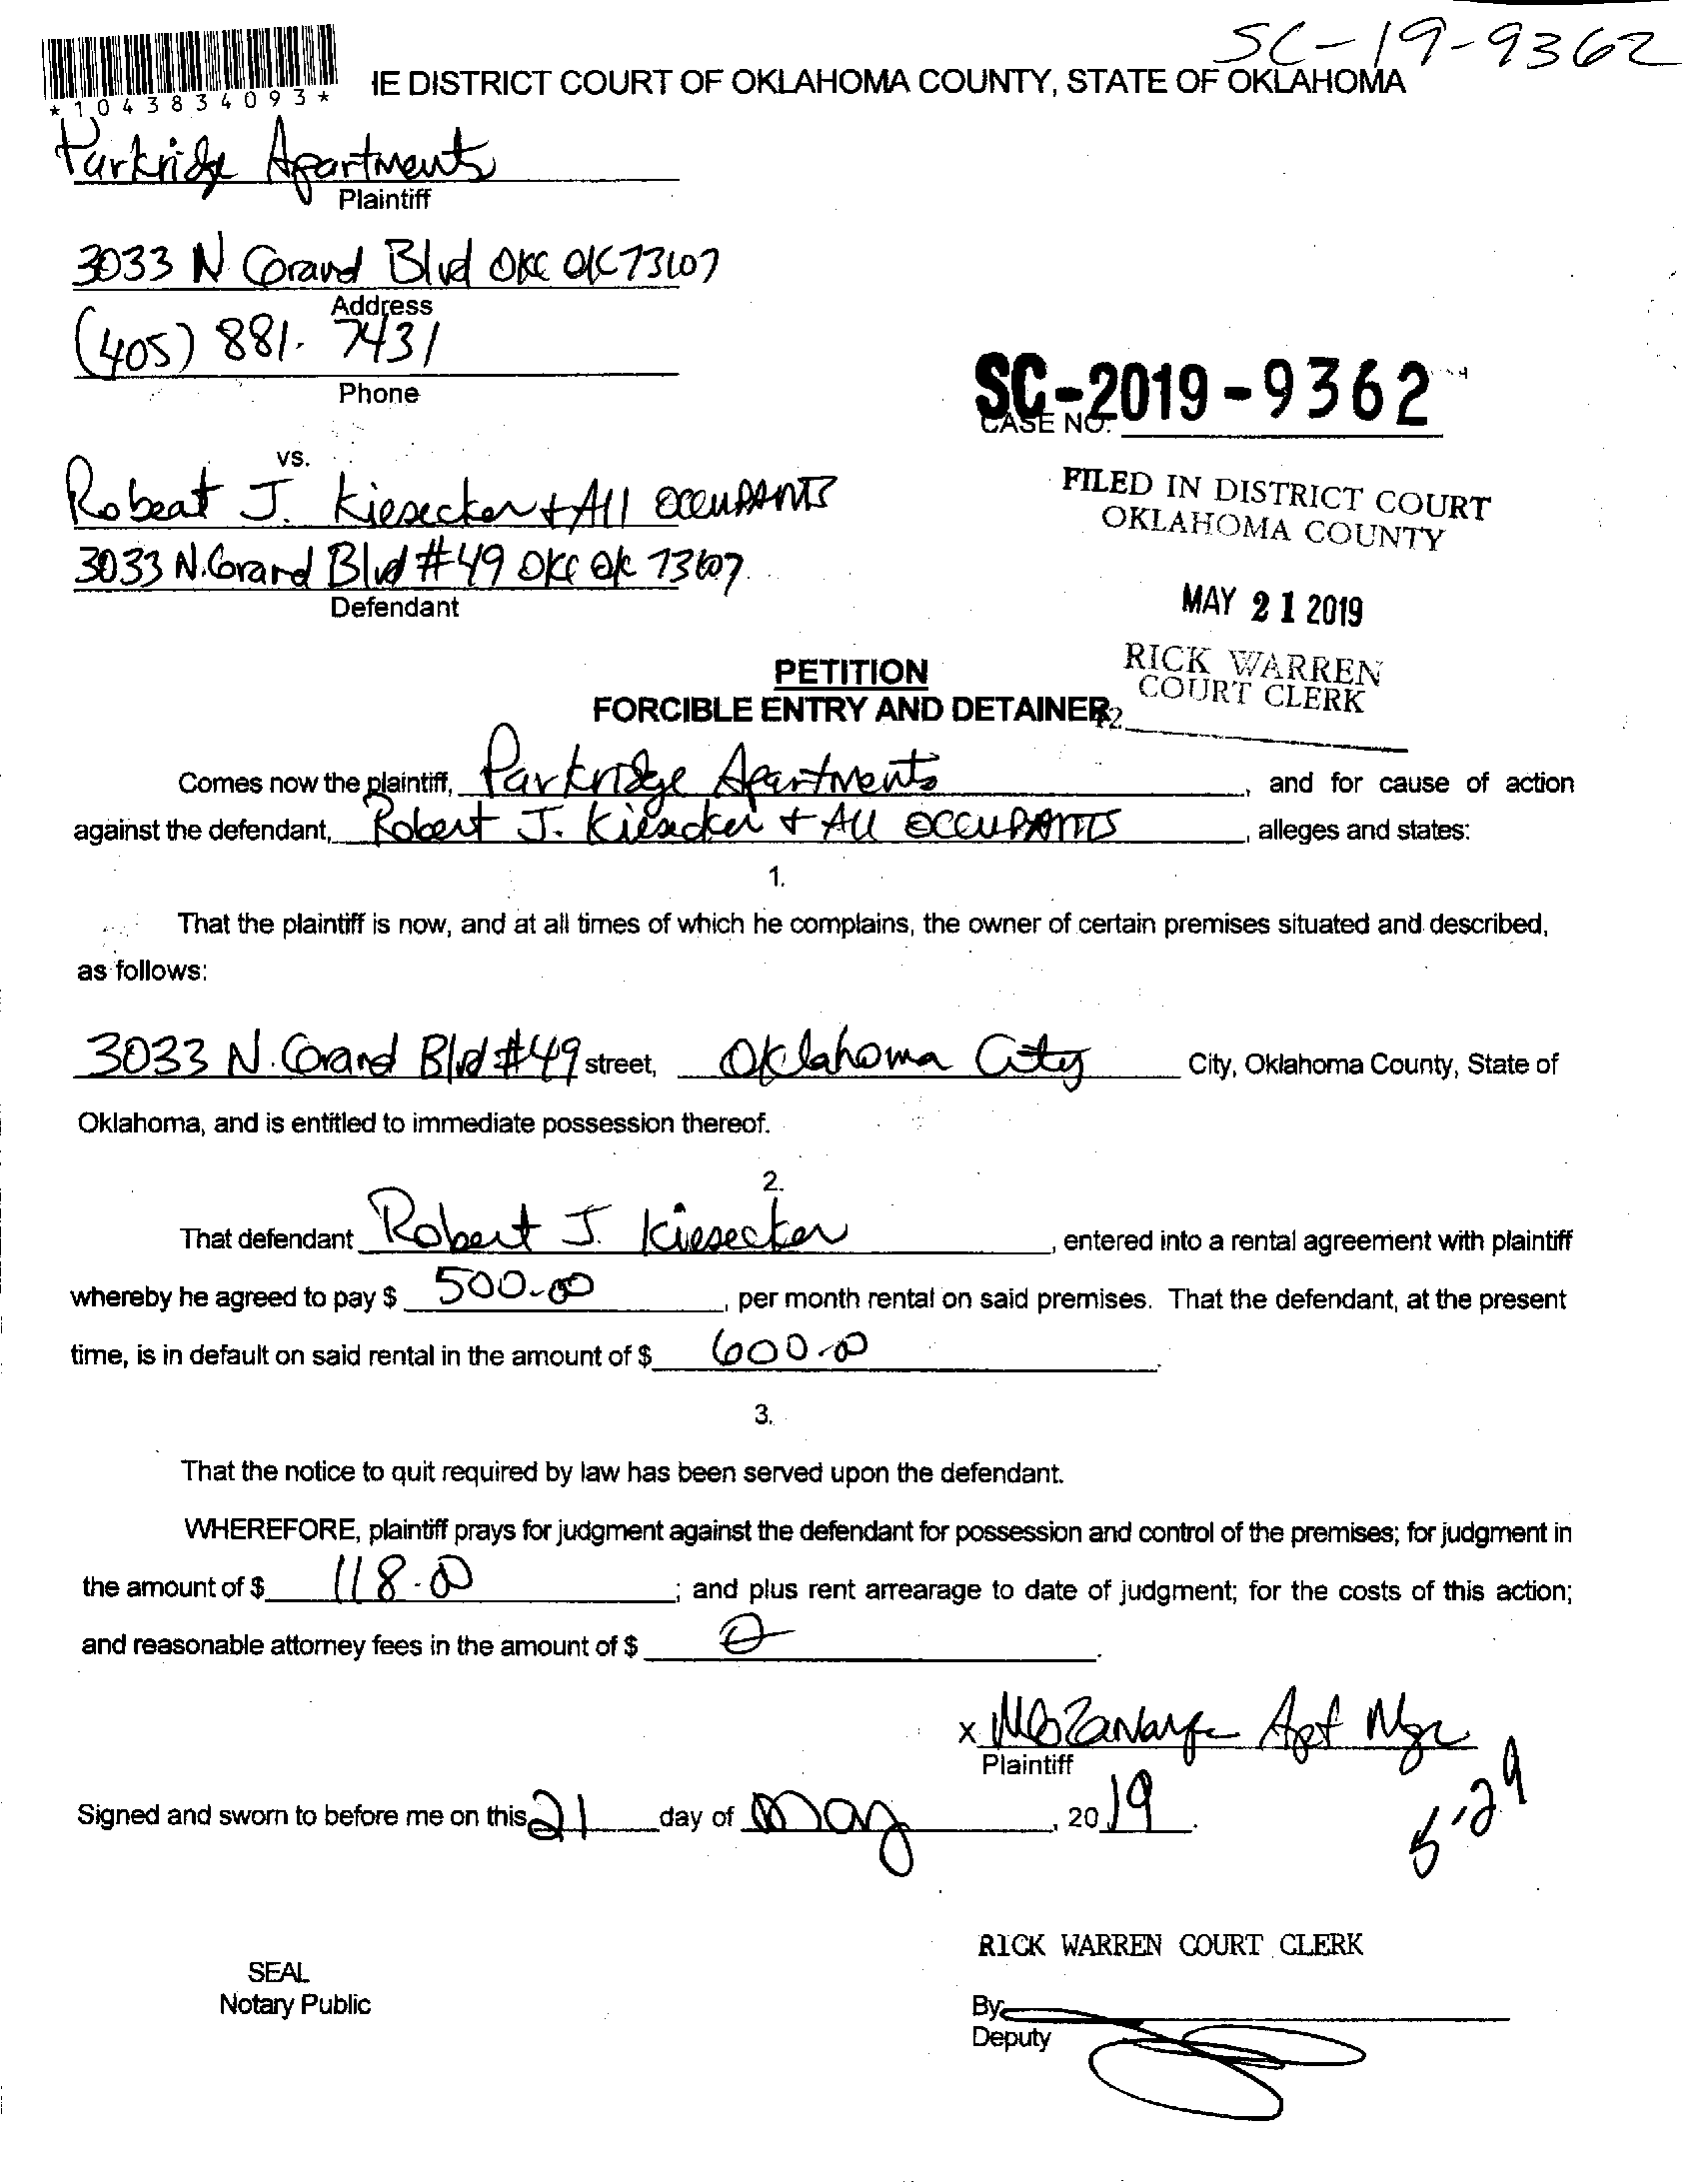 SC-19-9362
*1043834093*
IE DISTRICT COURT OF OKLAHOMA COUNTY, STATE OF OKLAHOMA
Parkridge Apartments
Plaintiff
3033 N Grand Blvd OKC OK 73107
Address
(405) 881-7431
Phone
SC-2019-9362
CASE NO.
vs.
Robert J. Kiesecker + All OCCUPANTS
3033 N. Grand Blvd #49 OKC OK 73107
Defendant
FILED IN DISTRICT COURT
OKLAHOMA COUNTY
MAY 21 2019
RICK WARREN
COURT CLERK
PETITION
FORCIBLE ENTRY AND DETAINER
Comes now the plaintiff, Parkridge Apartments, and for cause of action
against the defendant, Robert J. Kiesecker + All OCCUPANTS, alleges and states:
1.
That the plaintiff is now, and at all times of which he complains, the owner of certain premises situated and described,
as follows:
3033 N. Grand Blvd #49 street, Oklahoma City City, Oklahoma County, State of
Oklahoma, and is entitled to immediate possession thereof.
2.
That defendant Robert J. Kiesecker, entered into a rental agreement with plaintiff
whereby he agreed to pay $ 500.00, per month rental on said premises. That the defendant, at the present
time, is in default on said rental in the amount of $ 600.00.
3.
That the notice to quit required by law has been served upon the defendant.
WHEREFORE, plaintiff prays for judgment against the defendant for possession and control of the premises; for judgment in
the amount of $ 118.00; and plus rent arrearage to date of judgment; for the costs of this action;
and reasonable attorney fees in the amount of $ 0.
x Apt Mgr
Plaintiff
Signed and sworn to before me on this 21 day of May, 2019.
5-29
RICK WARREN COURT CLERK
SEAL
Notary Public
By
Deputy